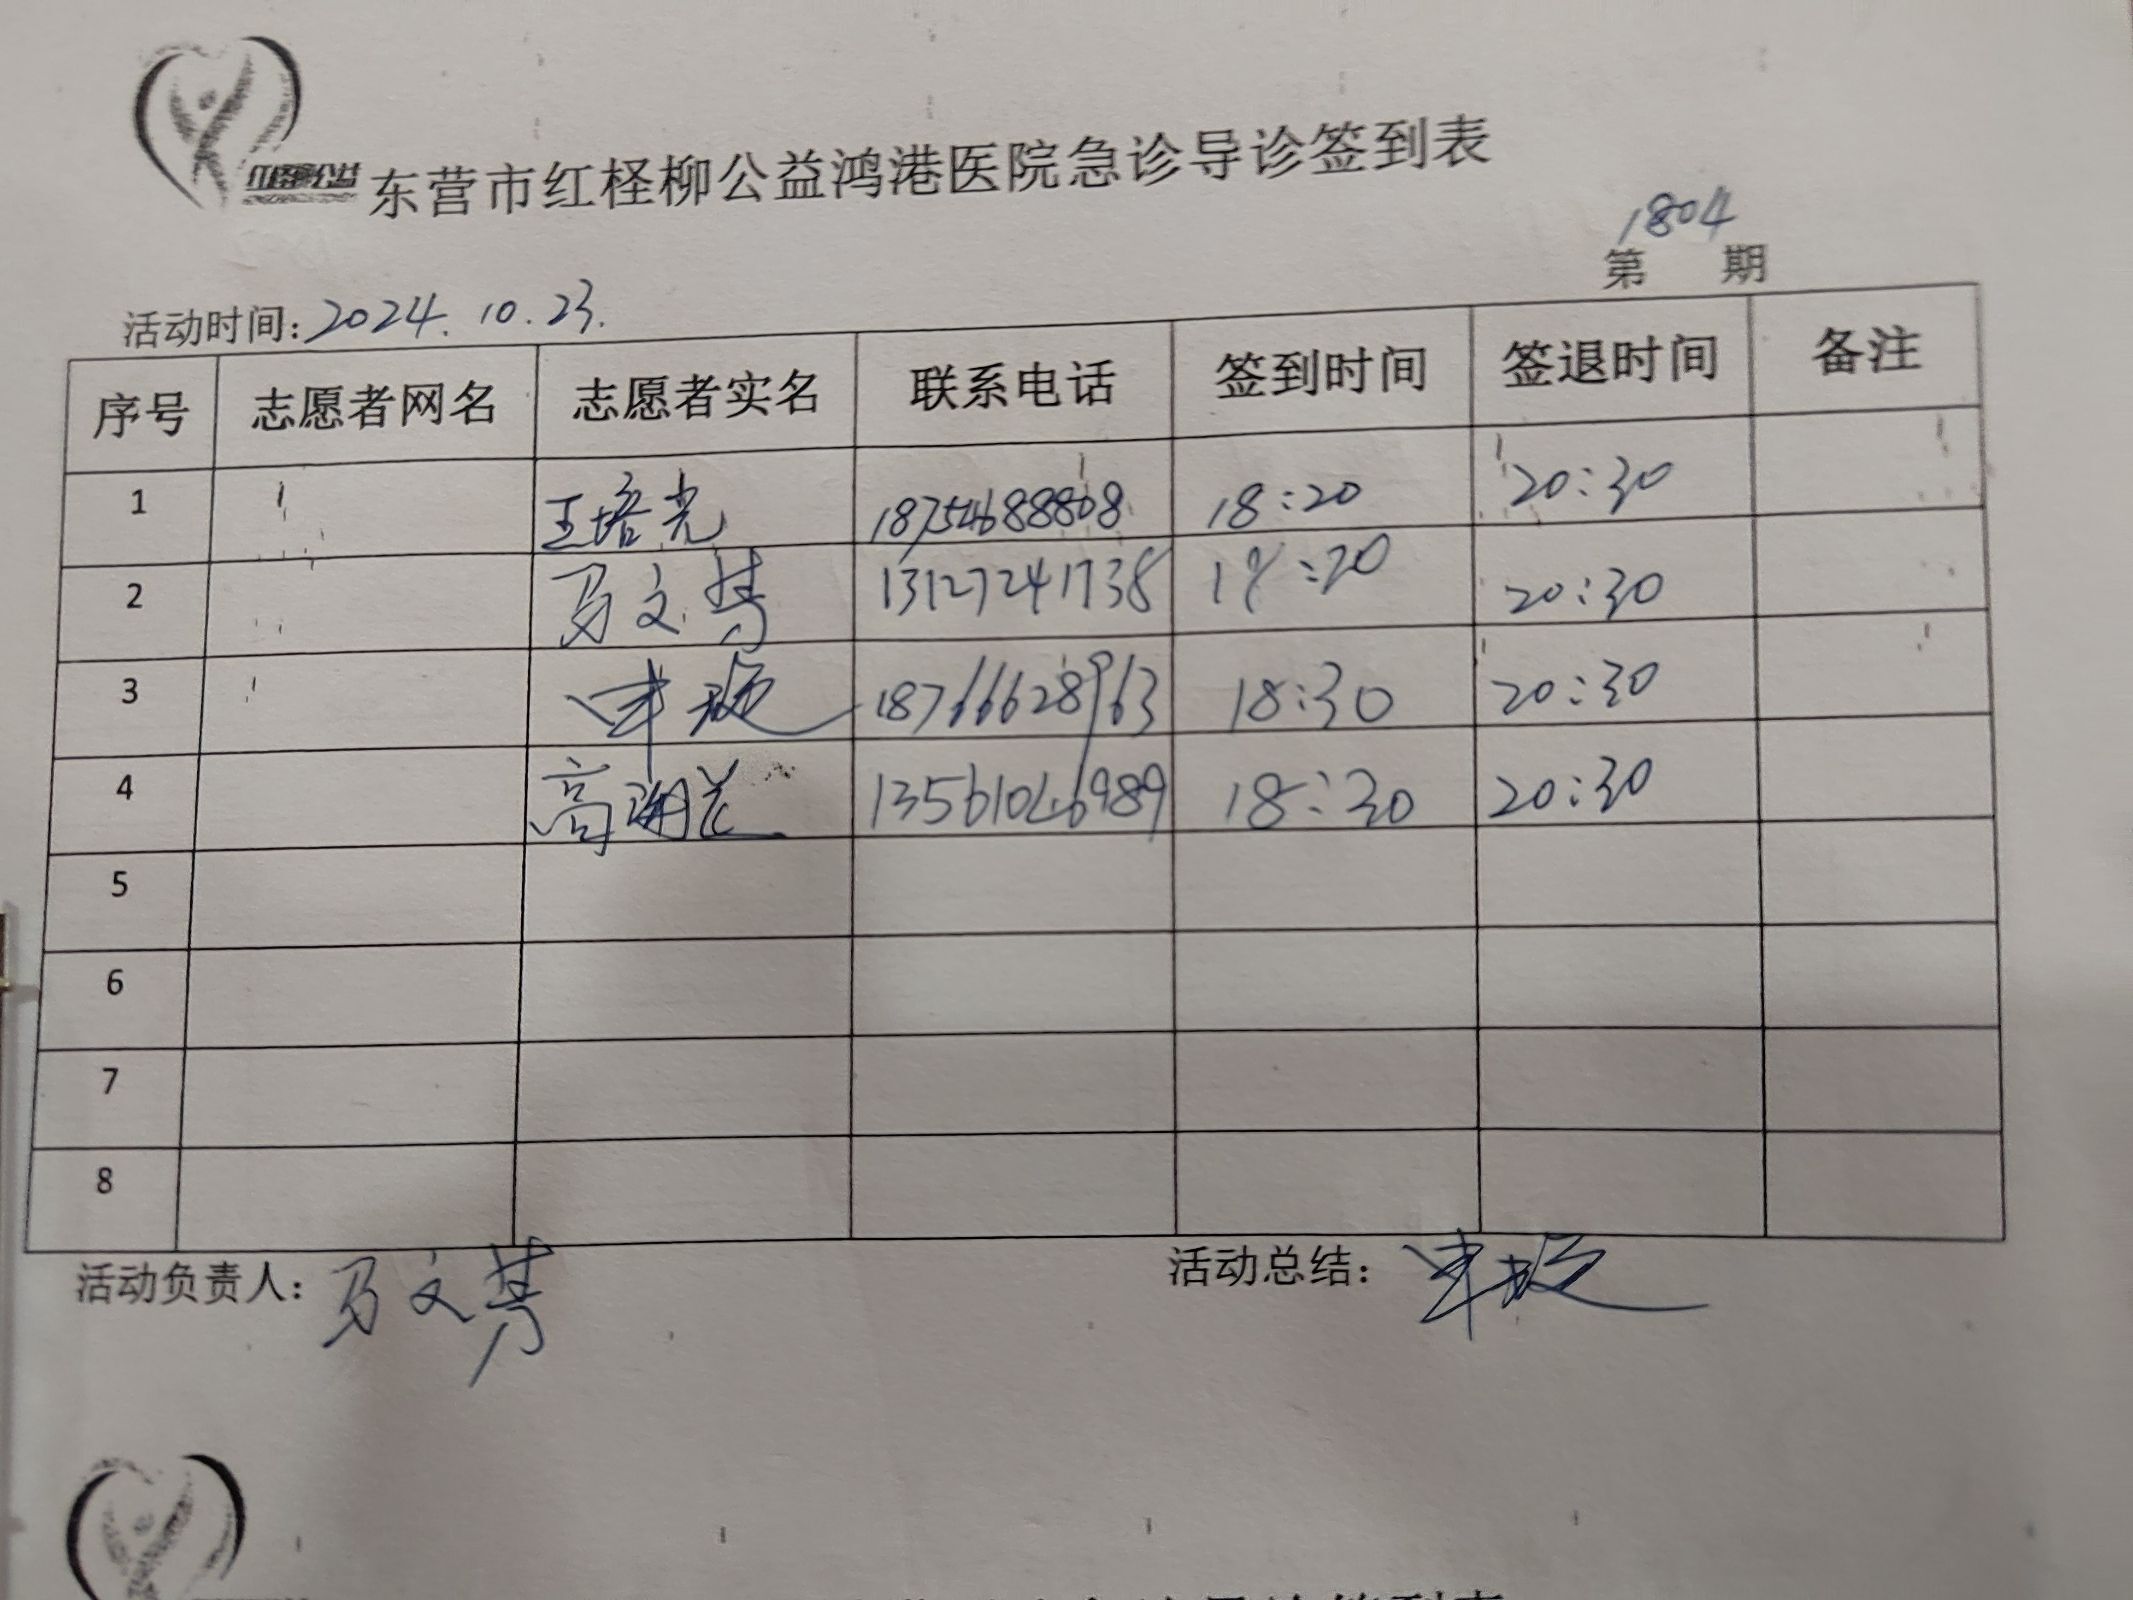 东营市红柽柳公益鸿港医院急诊导诊签到表
1804
第 期
活动时间：2024.10.23.
序号 志愿者网名 志愿者实名 联系电话 签到时间 签退时间 备注
1 王培光 18754688808 18:20 20:30
2 马文 13127241738 18:20 20:30
3 18766628963 18:30 20:30
4 高 13561046989 18:30 20:30
5
6
7
8
活动负责人：马文
活动总结：